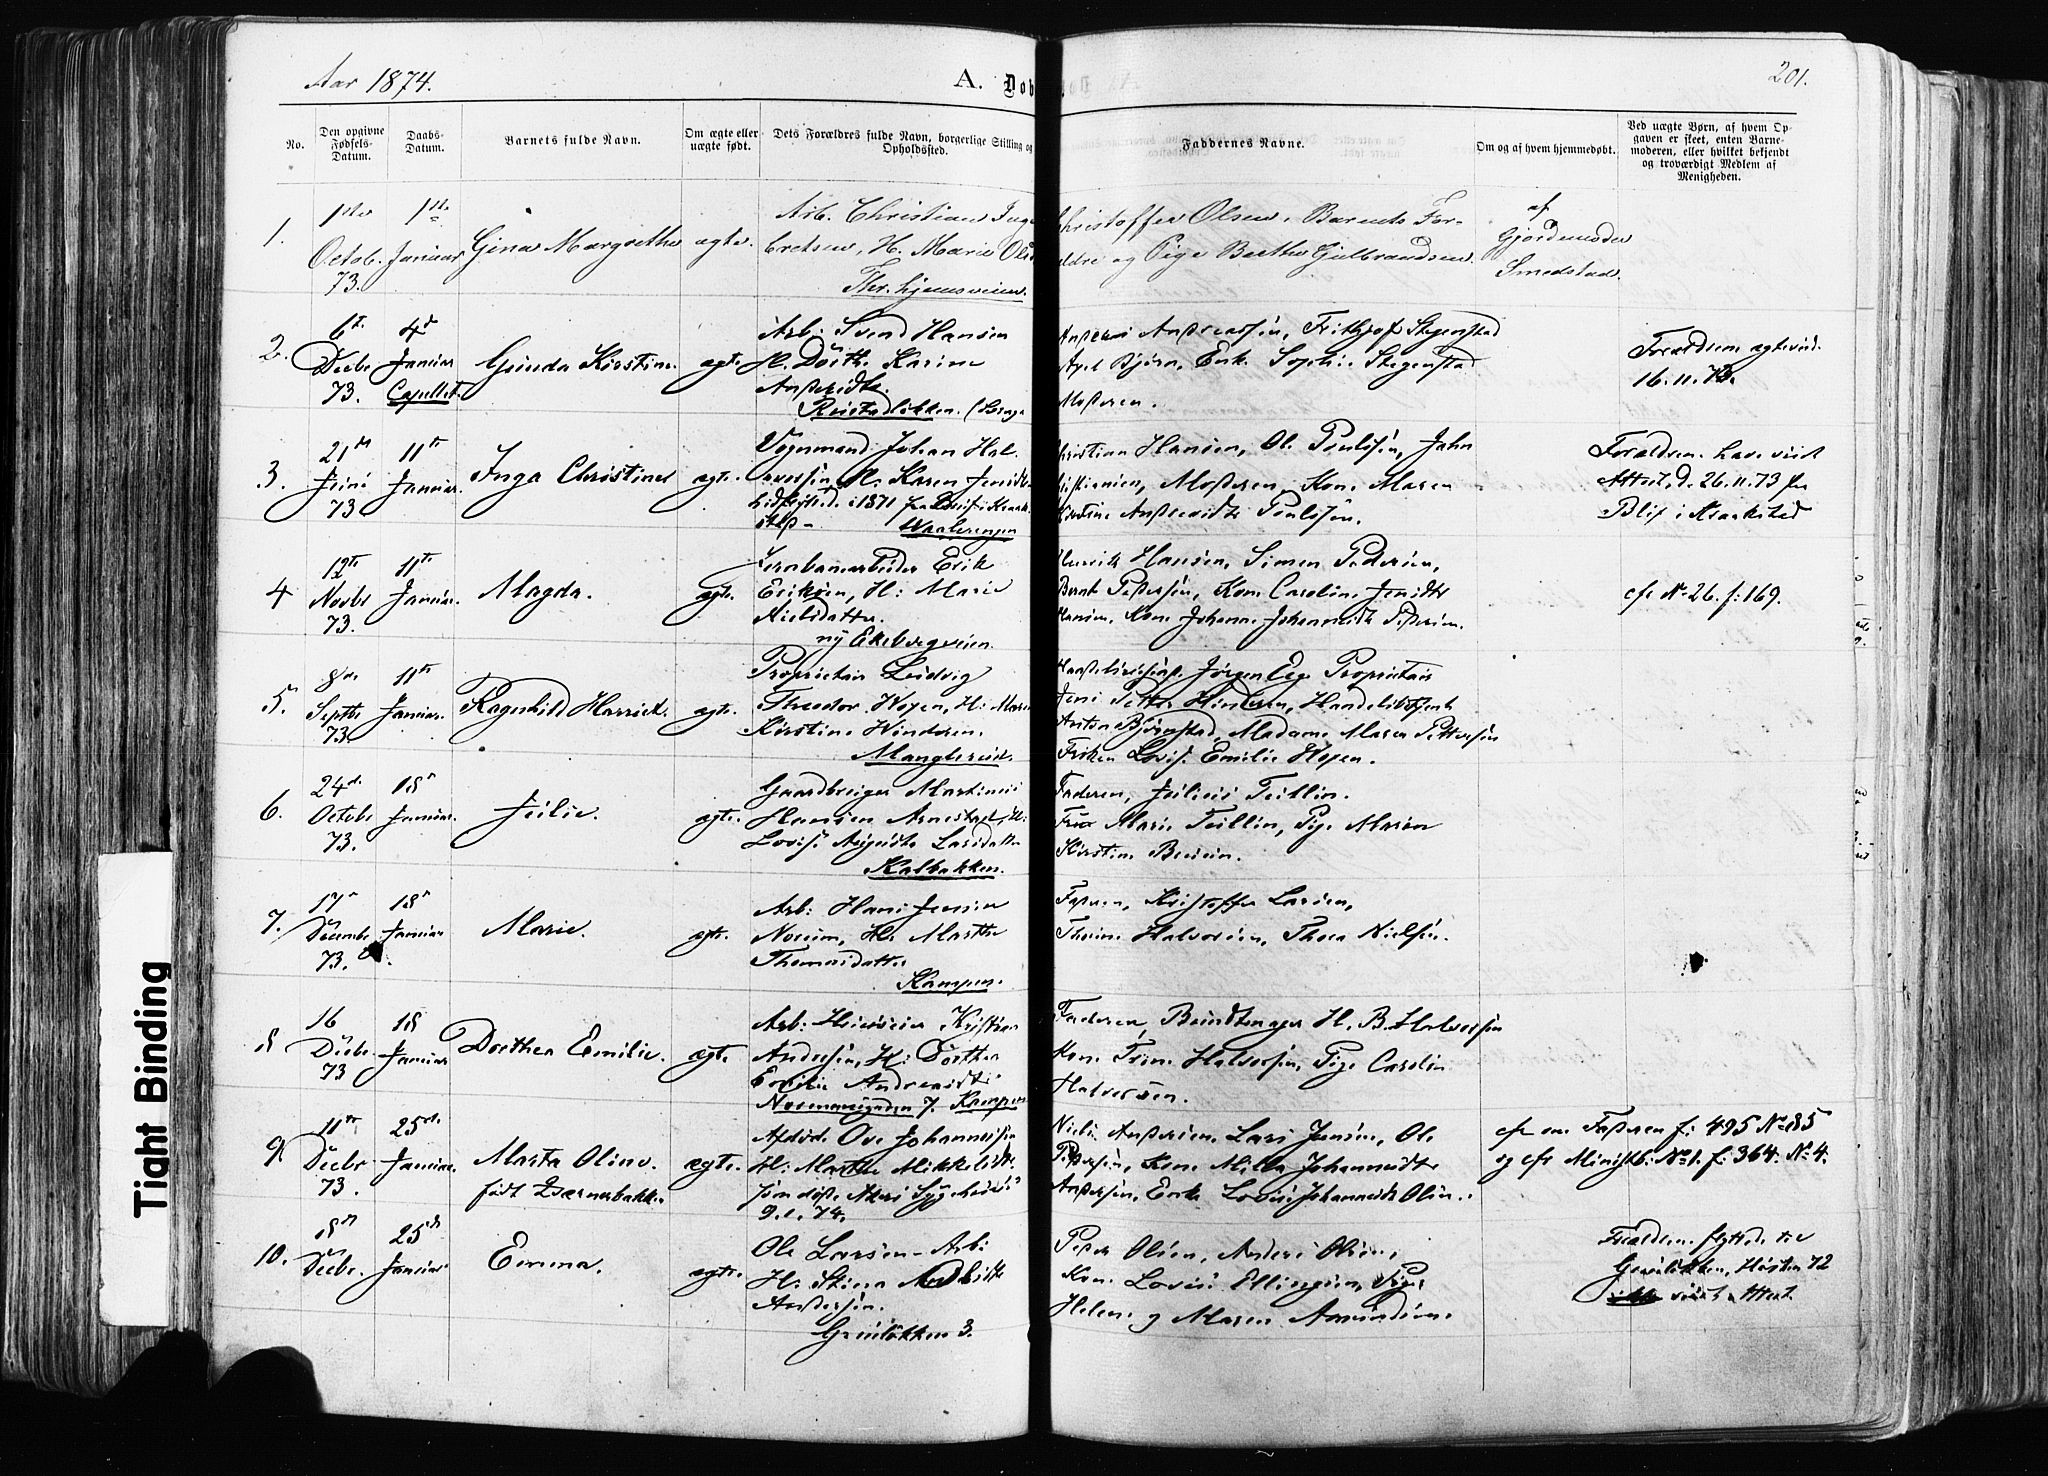 Aar 1874.
A. Døb
201.
No.
Den opgivne Fødsels-Datum.
Daabs-Datum.
Barnets fulde Navn.
Om ægte eller uægte født.
Dets Forældres fulde Navn, borgerlige Stilling og Opholdssted.
Faddernes Navne.
Om og af hvem hjemmedøbt.
Ved uægte Børn, af hvem Op-
gaven er skeet, enten Barne-
moderen, eller hvilket bekjendt
og troværdigt Medlem af
Menigheden.
1.
1ste
Octob.
73.
1ste
Januar
Gina Margrethe
ægte.
Arb. Christian Inge
bretsen, H. Marie Ols
Thr.hjemsveien.
Christoffer Olsen, Barnets For-
ældre og Pige Berthe Gulbrandsen.
af
Gjordemoder
Smedstad.
2.
6t.
Decbr
73.
4d
Januar
Capellet.
Gunda Kirstine.
ægte
Arb: Svend Hansen
H. Dorth. Karine
Andersdtr.
Andreassen, Frithjof Stegenstad
Axel Bjørn, Enk. Sophie Stegenstad
Moderen.
Forældrene ægteviede
16.11.73.
3.
21d
Juni
73
11te
Januar.
Inga Christine
ægte.
Vognmand Johan Hal
vorsen, H. Karen Jensdtr.
hidflyttede i 1871 fra
Waalerengen
Christian Hansen, Ole Poulsen, John
Christiansen, Moderen, Kone Maren
Kirstine Andersdtr Poulsen.
Forældrene have viist
Attest, d. 26.11.73 fra
4
12te
Novbr
73.
11te
Januar.
Magda.
ægte.
Jernbanearbeider Erik
Eriksen, H: Marie
Nielsdatter.
ny Ekebergveien.
Henrik Hansen, Simen Pedersen,
Bernt Pedersen, Kone Caroline Jensdtr
Hansen, Kone Johanne Johannesdtr Pedersen.
cfr No 26. f: 169.
5.
8de
Septbr
73.
11te
Januar.
Ragnhild Harriet.
ægte.
Proprietair Ludvig
Theodor Hoyen, H: Maren
Kirstine Winderen.
Manglerud.
Jørgen Eeg Proprietair
Jens Petter Winderen, Handelsbetjent
Anton Bjørnstad, Madame Maren Pettersen
Frøken Lovise Emilie Hoyen.
6.
24d.
Octobr
73.
18
Januar.
Julie.
ægte.
Gaardbruger Martinus
Hansen Arnestad, H:
Lovise Augusta Larsdatter
Kalbakken.
Faderen, Julius Teillin.
Frue Marie Teillin, Pige Maren
Kirstine
7.
17
Decembr
73.
18
Januar
Marie.
ægte.
Arb: Hans Jensen
Norum, H: Marthe
Thomasdatter
Kampen.
Faderen, Kristoffer Larsen,
Thorine Halvorsen, Thora Nielsen.
8
16
Decbr.
73
18
Januar
Dorthea Emilie.
ægte
Arb: Kristian
Andersen, H: Dorthea
Emilie Andreasdtr.
Normannsgaden 7. Kampen
Faderen, H. B. Halvorsen
Kone Trine Halvorsen, Pige Caroline
Halvorsen.
9
11te
Decbr
73.
25de
Januar.
Marta Oline.
født Kværnerbakken
ægte.
Afdøde Ove Johannessen
H: Marthe Mikkelsdtr.
som døde Akers Sygehuus
9.1.74.
Niels Andersen, Lars Jensen, Ole
Pedersen, Kone Milla Johannesdtr
Andersen, Enke Lovise Johannesdtr Olsen.
cfr om Faderen f: 495 No 85
og cfr Ministb: No 1. f: 364. No 4.
10.
8d
Decbr.
25d
Januar
Emma.
ægte.
Ole Larsen Arb:
H: Stina
Andersen.
Grünløkken 3.
Peder Olsen, Anders Olsen,
Kone Lovise Ellingsen, Pige
Helene og Maren Amundsen.
Forældrene flyttede til
Grünløkken, Høsten 72
viist Attest.
Tight Binding